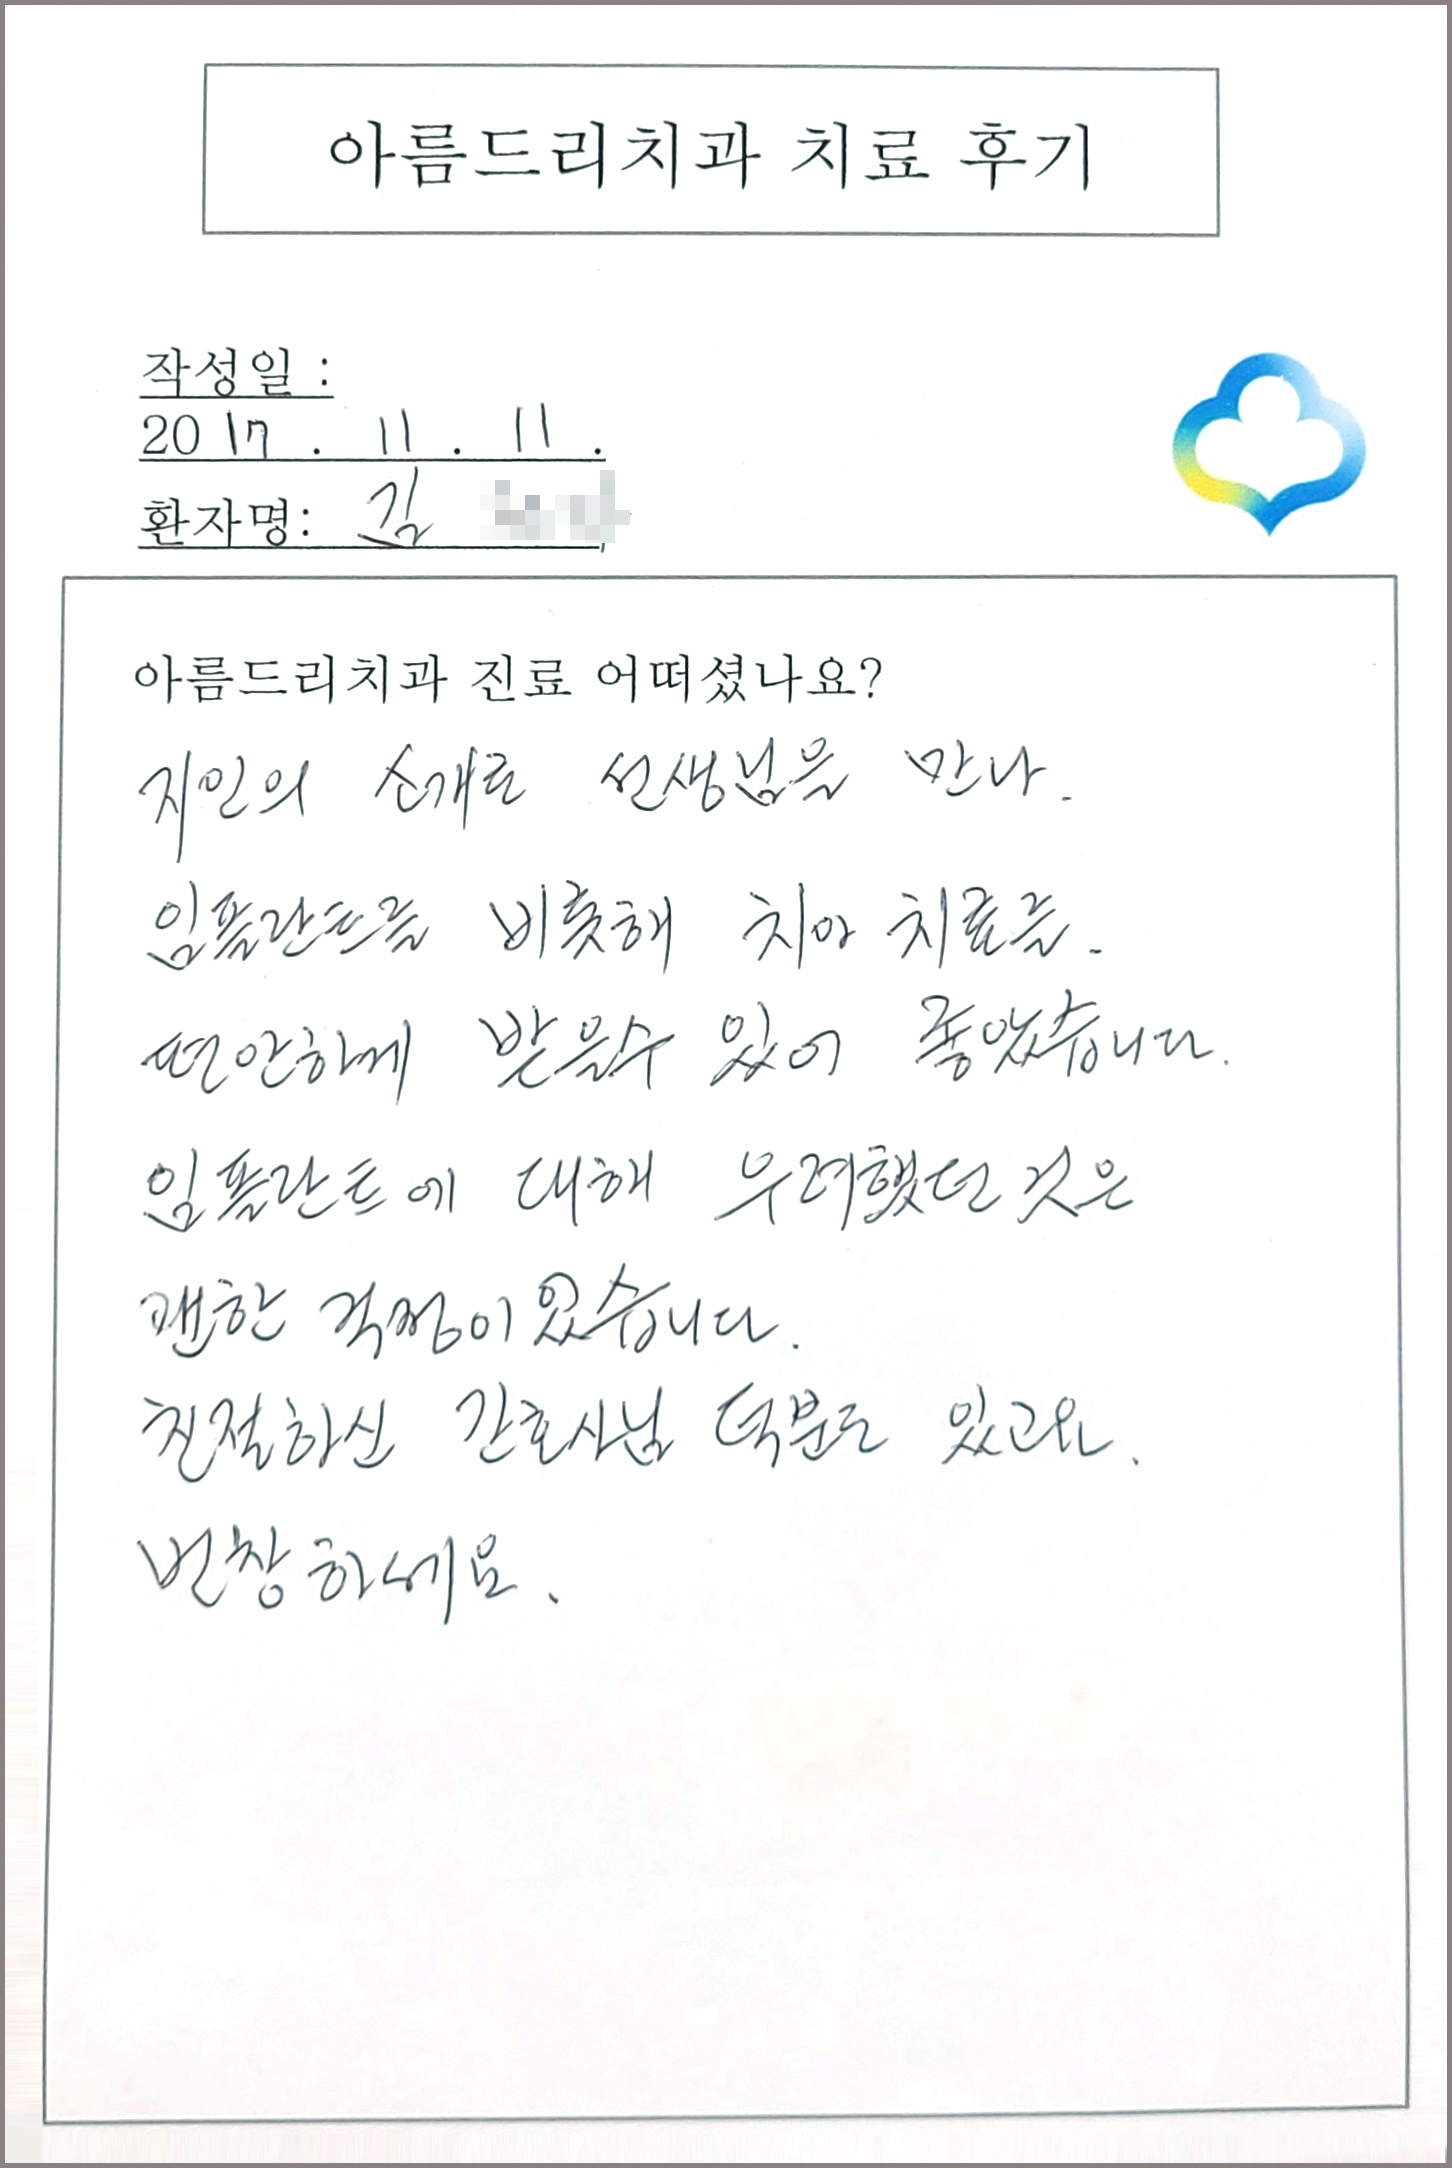 아름드리치과 치료 후기
작성일 :
2017 . 11 . 11 .
환자명: 김
아름드리치과 진료 어떠셨나요?
지인의 소개로 선생님을 만나.
임플란트를 비롯해 치아 치료를.
편안하게 받을수 있어 좋았습니다.
임플란트에 대해 우려했던 것은
괜한 걱정이었습니다.
친절하신 간호사님 덕분도 있고요.
번창하세요.